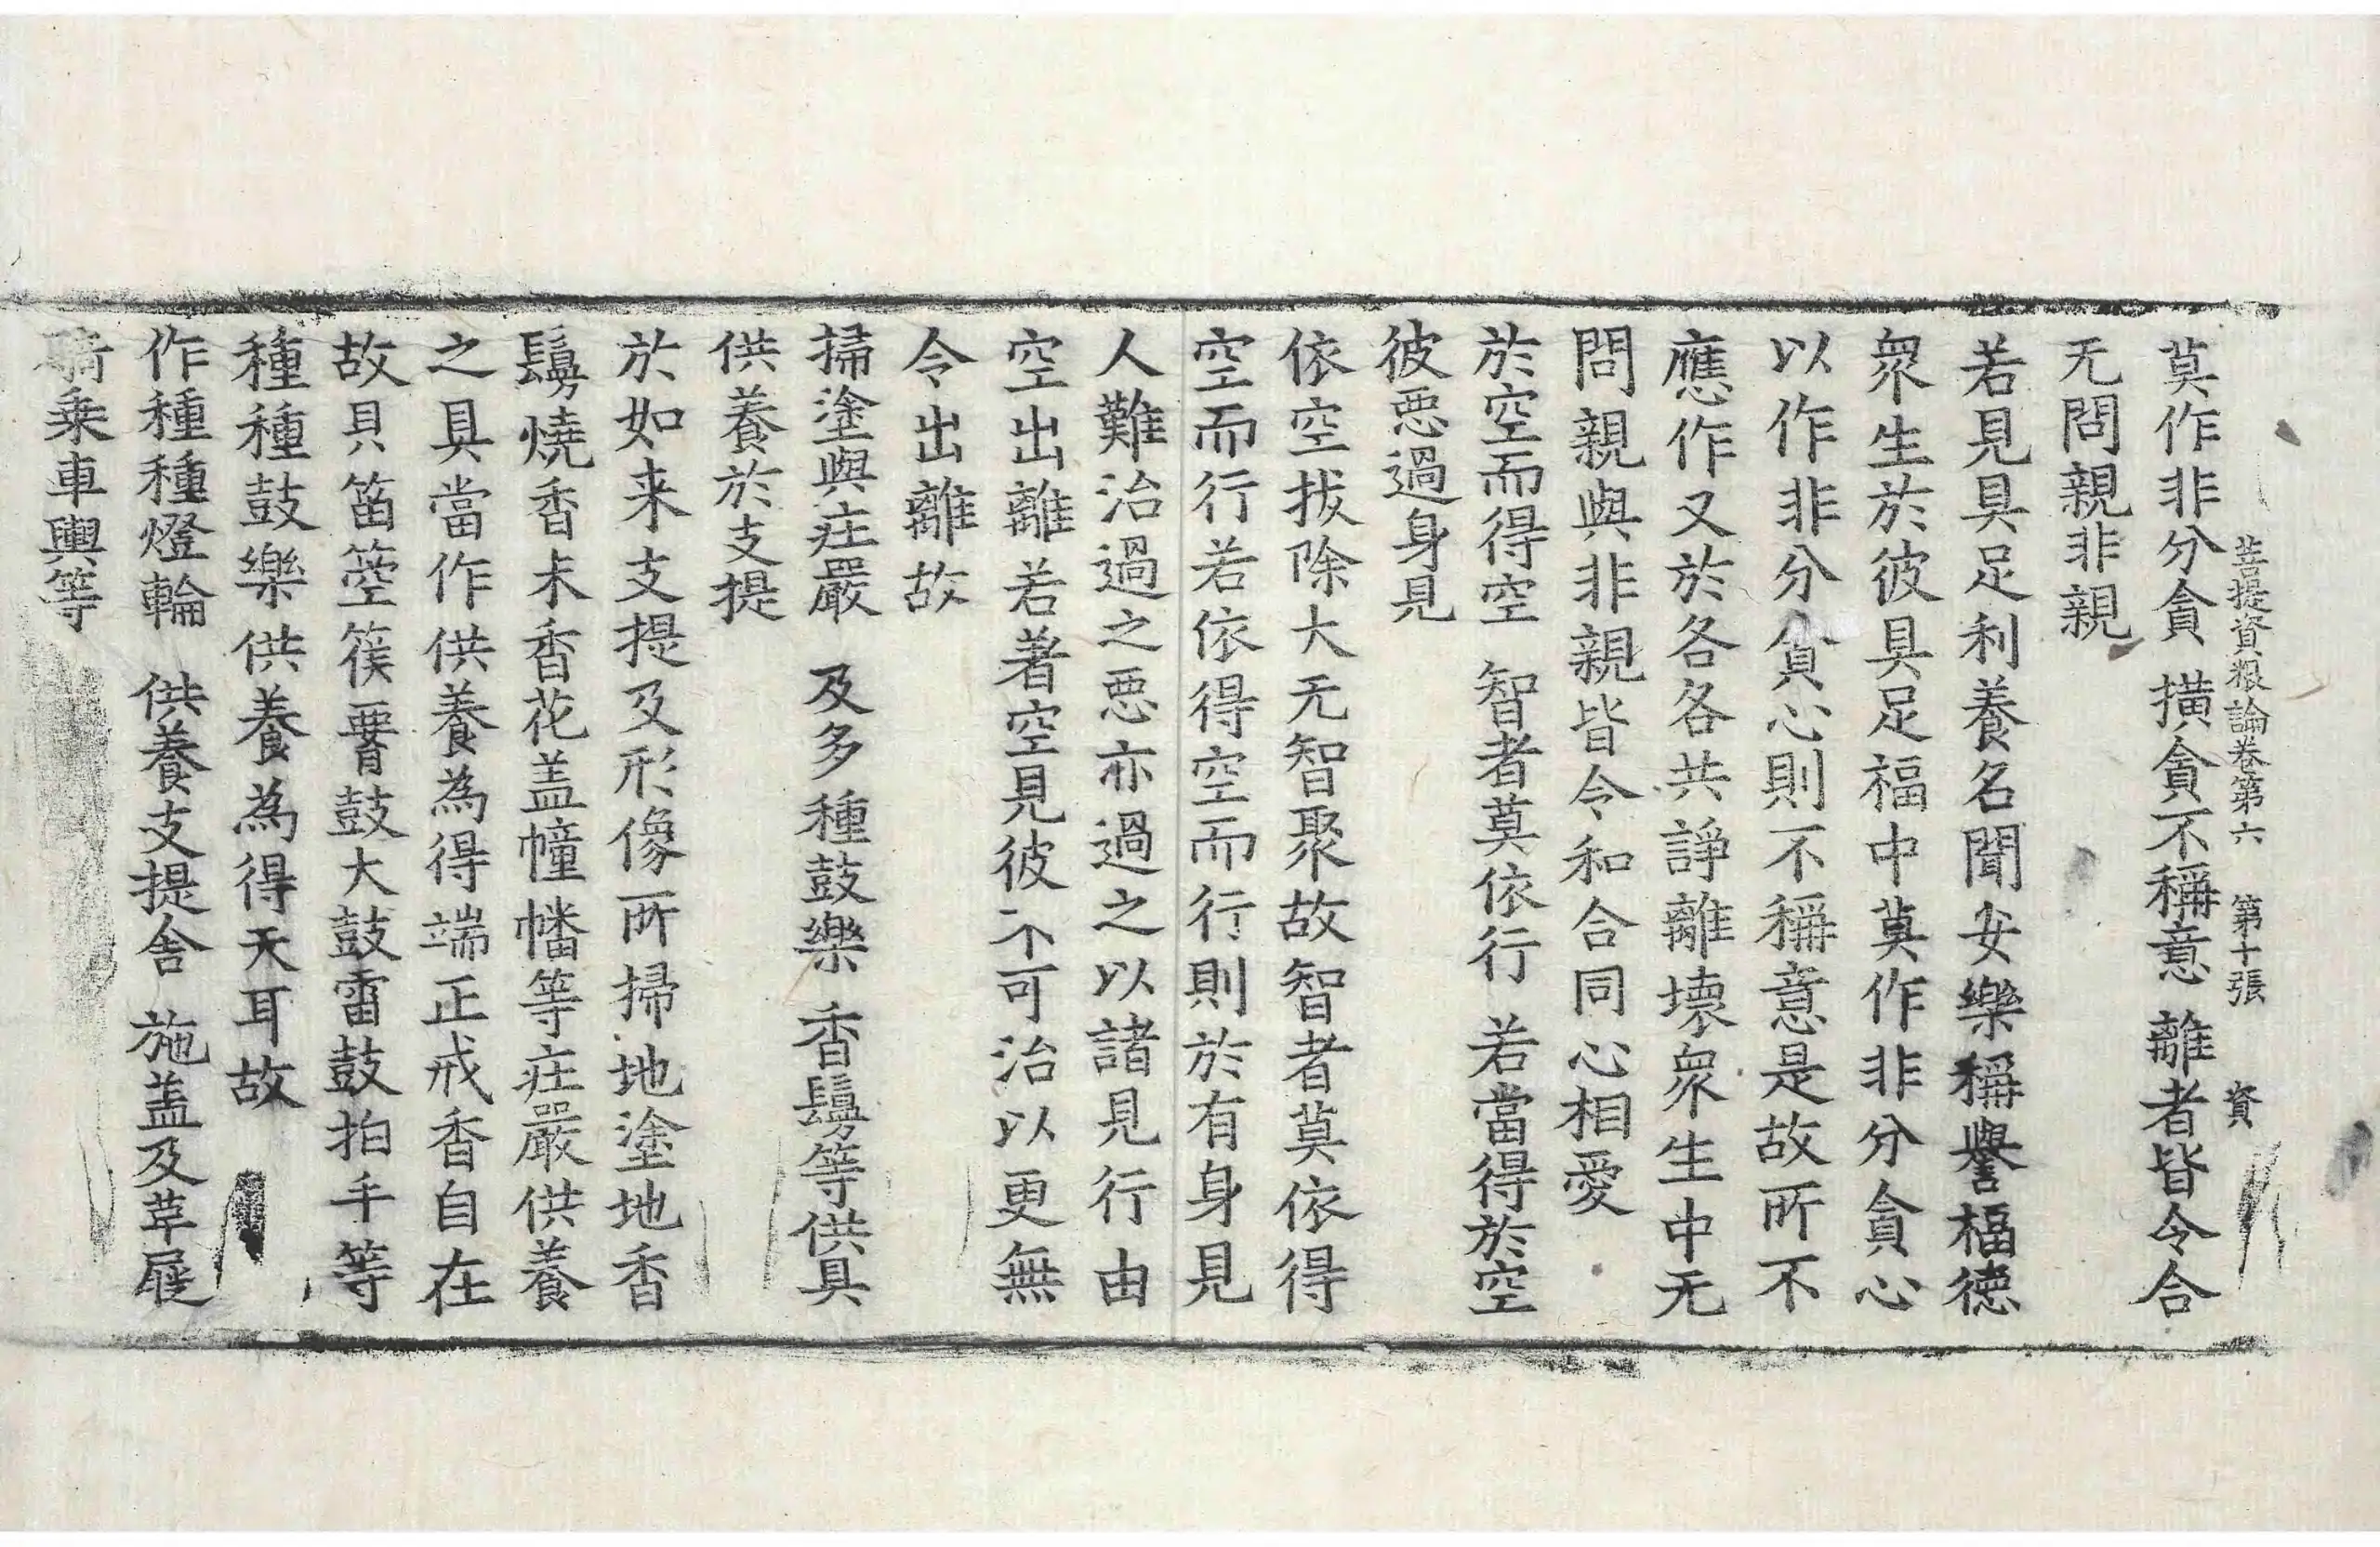 菩提資粮論卷第六　第十張　資
莫作非分貪　撗貪不稱意　離者皆令合
无問親非親
若見具足利養名聞安樂稱譽福德
衆生於彼具足福中莫作非分貪心
以作非分貪心則不稱意是故所不
應作又於各各共諍離壞衆生中无
問親與非親皆令和合同心相愛
於空而得空　智者莫依行　若當得於空
彼惡過身見
依空拔除大无智聚故智者莫依得
空而行若依得空而行則於有身見
人難治過之惡亦過之以諸見行由
空出離若著空見彼不可治以更無
令出離故
掃塗與莊嚴　及多種鼓樂　香鬘等供具
供養於支提
於如来支提及形像所掃地塗地香
鬘燒香末香花盖幢幡等莊嚴供養
之具當作供養為得端正戒香自在
故貝笛箜篌𦝫鼓大鼓雷鼓拍手等
種種鼓樂供養為得天耳故
作種種燈輪　供養支提舍　施盖及革屣
騎乗車輿等